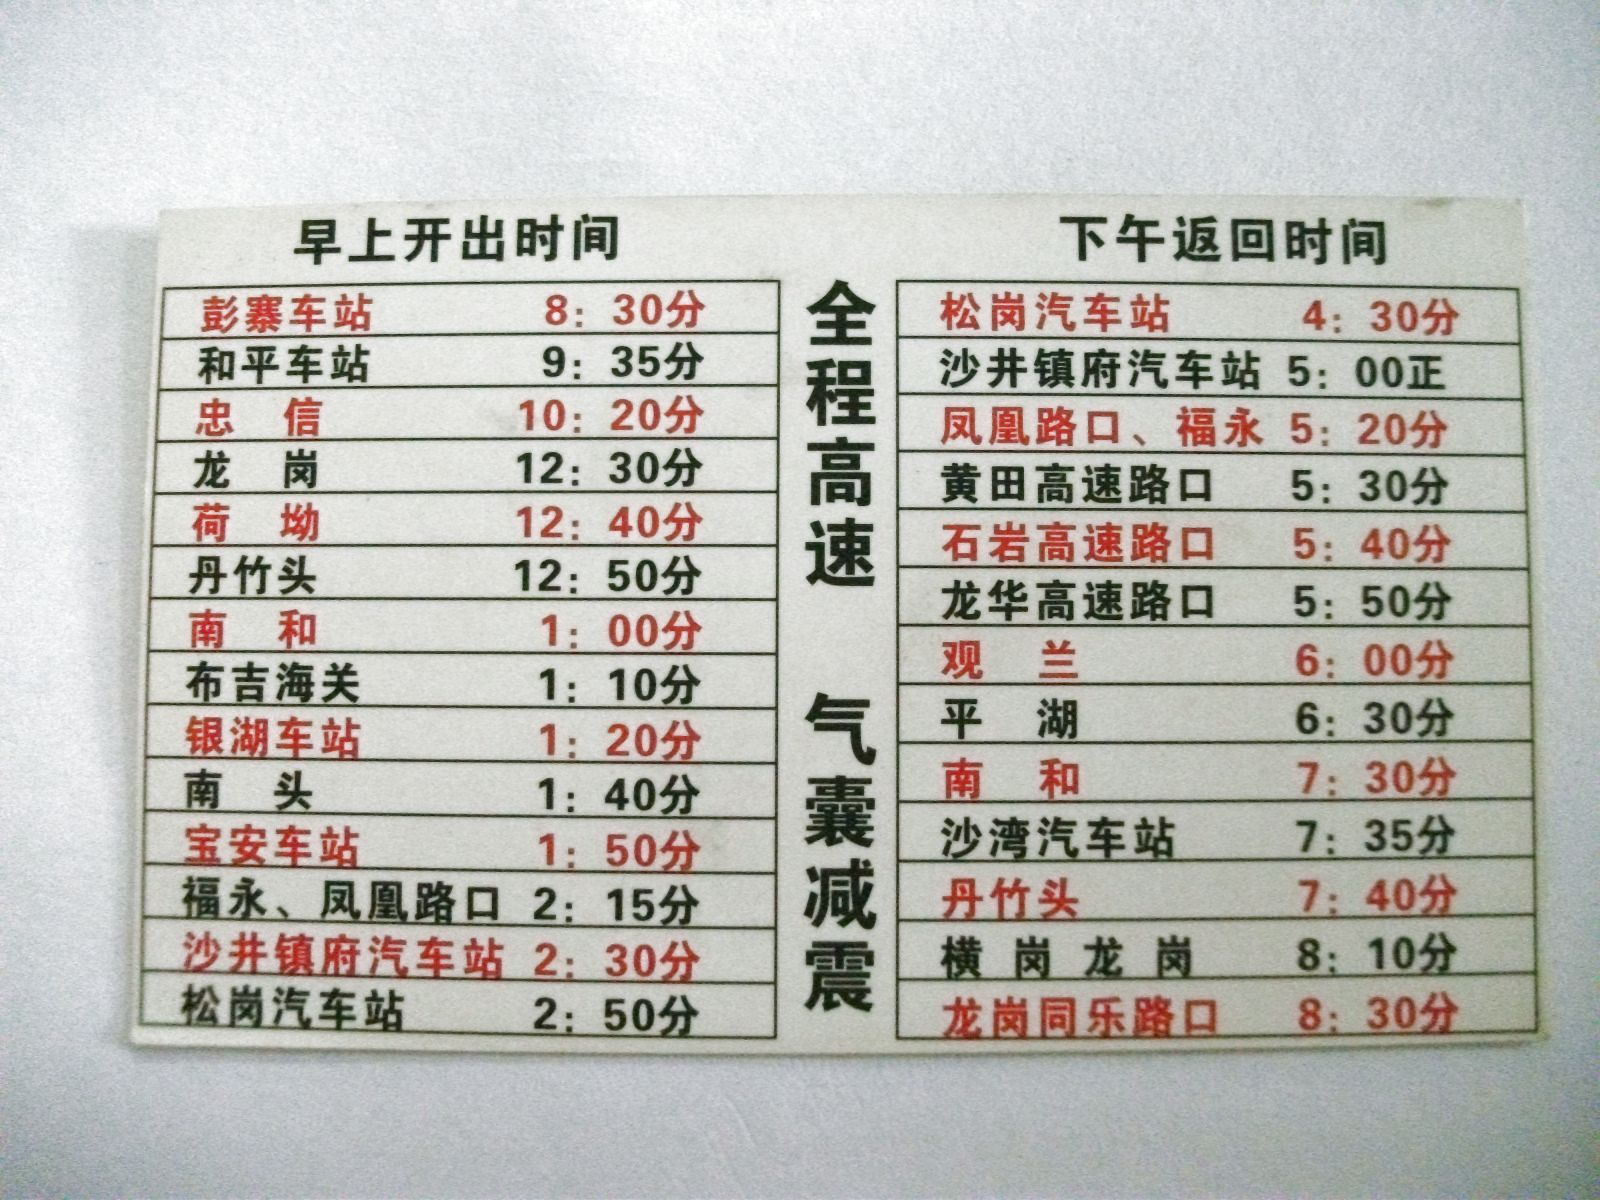 早上开出时间
彭寨车站 8：30分
和平车站 9：35分
忠 信 10：20分
龙 岗 12：30分
荷 坳 12：40分
丹竹头 12：50分
南 和 1：00分
布吉海关 1：10分
银湖车站 1：20分
南 头 1：40分
宝安车站 1：50分
福永、凤凰路口 2：15分
沙井镇府汽车站 2：30分
松岗汽车站 2：50分
全程高速 气囊减震
下午返回时间
松岗汽车站 4：30分
沙井镇府汽车站 5：00正
凤凰路口、福永 5：20分
黄田高速路口 5：30分
石岩高速路口 5：40分
龙华高速路口 5：50分
观 兰 6：00分
平 湖 6：30分
南 和 7：30分
沙湾汽车站 7：35分
丹竹头 7：40分
横 岗 龙 岗 8：10分
龙岗同乐路口 8：30分